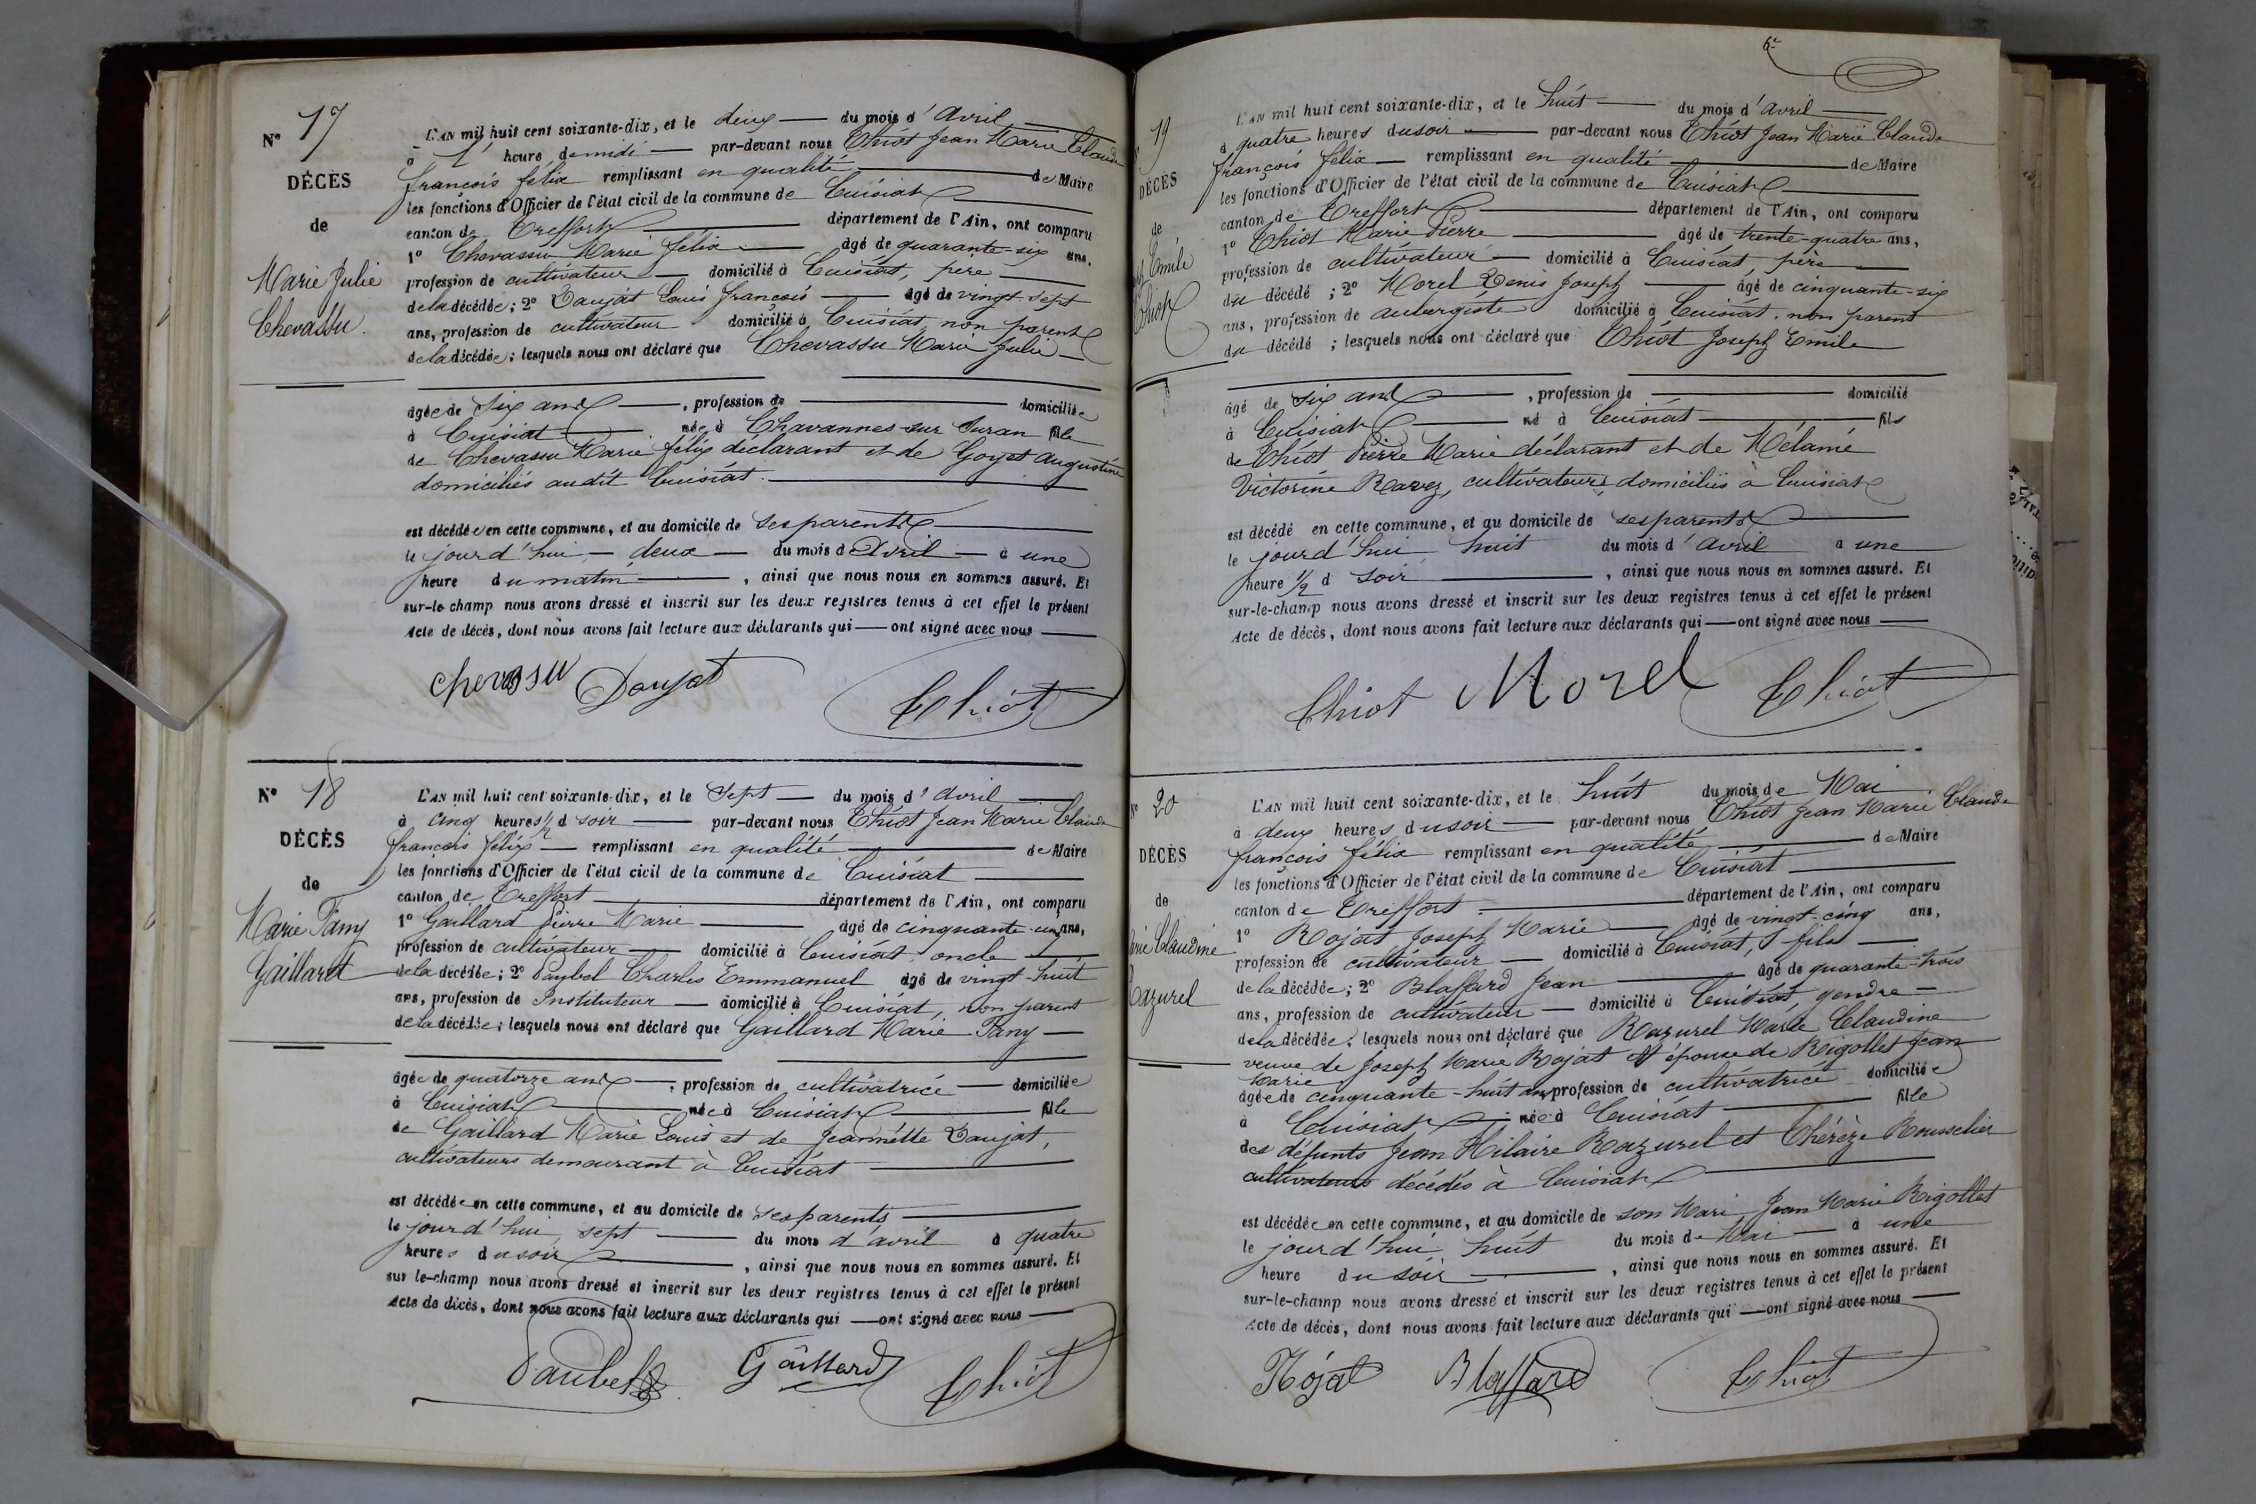 Nº 17
DÉCÈS
de
Marie Julie
Chevassu.
L'AN mil huit cent soixante-dix, et le deux du mois d'Avril
à 1 heure de midi par-devant nous Chiot Jean Marie Claude
françois félix remplissant en qualité de Maire
les fonctions d'Officier de l'état civil de la commune de Cuisiat
canton de Treffort département de l'Ain, ont comparu
1º Chevassu Marie félix âgé de quarante-six ans,
profession de cultivateur domicilié à Cuisiat, père
de la décédée; 2º Daujat Louis françois âgé de vingt-sept
ans, profession de cultivateur domicilié à Cuisiat, non parent
de la décédée; lesquels nous ont déclaré que Chevassu Marie Julie
âgée de six ans, profession de domiciliée
à Cuisiat née à Chavannes-sur Suran fille
de Chevassu Marie félix déclarant et de Goyet Augustine
domiciliés audit Cuisiat.
est décédée en cette commune, et au domicile de ses parents
le jourd'hui deux du mois d'Avril à une
heure du matin, ainsi que nous nous en sommes assuré. Et
sur-le-champ nous avons dressé et inscrit sur les deux registres tenus à cet effet le présent
Acte de décès, dont nous avons fait lecture aux déclarants qui ont signé avec nous
chevassu Daujat Chiot
Nº 18
DÉCÈS
de
Marie Fany
Gaillard
L'AN mil huit cent soixante-dix, et le Sept du mois d'Avril
à cinq heures 1/2 d soir par-devant nous Chiot Jean Marie Claude
françois félix remplissant en qualité de Maire
les fonctions d'Officier de l'état civil de la commune de Cuisiat
canton de Treffort département de l'Ain, ont comparu
1º Gaillard Pierre Marie âgé de cinquante-un ans,
profession de cultivateur domicilié à Cuisiat oncle
de la décédée; 2º Paubel Charles Emmanuel âgé de vingt-huit
ans, profession de Instituteur domicilié à Cuisiat, non parent
de la décédée; lesquels nous ont déclaré que Gaillard Marie Fany
âgée de quatorze ans, profession de cultivatrice domiciliée
à Cuisiat née à Cuisiat fille
de Gaillard Marie Louis et de Jeannette Daujat,
cultivateurs demeurant à Cuisiat
est décédée en cette commune, et au domicile de ses parents
le jourd'hui sept du mois d'avril à quatre
heures du soir, ainsi que nous nous en sommes assuré. Et
sur le-champ nous avons dressé et inscrit sur les deux registres tenus à cet effet le présent
Acte de décès, dont nous avons fait lecture aux déclarants qui ont signé avec nous
Paubel Gaillard Chiot
6e
19
DÉCÈS
de
Emile
Chiot
L'AN mil huit cent soixante-dix, et le huit du mois d'Avril
à quatre heures du soir par-devant nous Chiot Jean Marie Claude
françois félix remplissant en qualité de Maire
les fonctions d'Officier de l'état civil de la commune de Cuisiat
canton de Treffort département de l'Ain, ont comparu
1º Chiot Marie Pierre âgé de trente-quatre ans,
profession de cultivateur domicilié à Cuisiat, père
du décédé; 2º Morel Denis Joseph âgé de cinquante-six
ans, profession de aubergiste domicilié à Cuisiat, non parent
du décédé; lesquels nous ont déclaré que Chiot Joseph Emile
âgé de six ans, profession de domicilié
à Cuisiat né à Cuisiat fils
de Chiot Pierre Marie déclarant et de Mélanie
Victorine Ravez, cultivateurs, domiciliés à Cuisiat
est décédé en cette commune, et au domicile de ses parents
le jourd'hui huit du mois d'avril à une
heure 1/2 d soir, ainsi que nous nous en sommes assuré. Et
sur-le-champ nous avons dressé et inscrit sur les deux registres tenus à cet effet le présent
Acte de décès, dont nous avons fait lecture aux déclarants qui ont signé avec nous
Chiot Morel Chiot
Nº 20
DÉCÈS
de
Claudine
Razurel
L'AN mil huit cent soixante-dix, et le huit du mois de Mai
à deux heures du soir par-devant nous Chiot Jean Marie Claude
françois félix remplissant en qualité de Maire
les fonctions d'Officier de l'état civil de la commune de Cuisiat
canton de Treffort département de l'Ain, ont comparu
1º Rojat Joseph Marie âgé de vingt-cinq ans,
profession de cultivateur domicilié à Cuisiat, fils
de la décédée; 2º Blaffard Jean âgé de quarante-trois
ans, profession de cultivateur domicilié à Cuisiat, gendre
de la décédée; lesquels nous ont déclaré que Razurel Marie Claudine
veuve de Joseph Marie Rojat et épouse de Rigollet Jean
Marie
âgée de cinquante-huit ans profession de cultivatrice domiciliée
à Cuisiat née à Cuisiat fille
des défunts Jean Hilaire Razurel et Thérèze Rousselier
cultivateurs décédés à Cuisiat
est décédée en cette commune, et au domicile de son Mari Jean Marie Rigollet
le jourd'hui huit du mois de Mai à une
heure du soir, ainsi que nous nous en sommes assuré. Et
sur-le-champ nous avons dressé et inscrit sur les deux registres tenus à cet effet le présent
Acte de décès, dont nous avons fait lecture aux déclarants qui ont signé avec nous
Rójat Blaffard Chiot